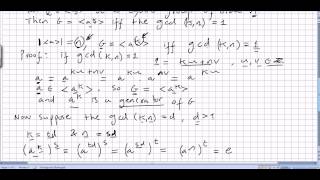 Then G = <a^k> iff the gcd (k,n) = 1
|<a>| = n, G = <a^k> iff gcd (k,n) = 1
Proof: If gcd (k,n) = 1 1 = ku+nv u, v ∈ Z
a = a^ku+nv = a^ku a^nv = a^ku
a ∈ <a^k> so G = <a^k>
and a^k is a generator of G
Now suppose the gcd (k,n) = d, d>1
k = td & n = sd
(a^k)^s = (a^td)^s = (a^sd)^t = (a^n)^t = e